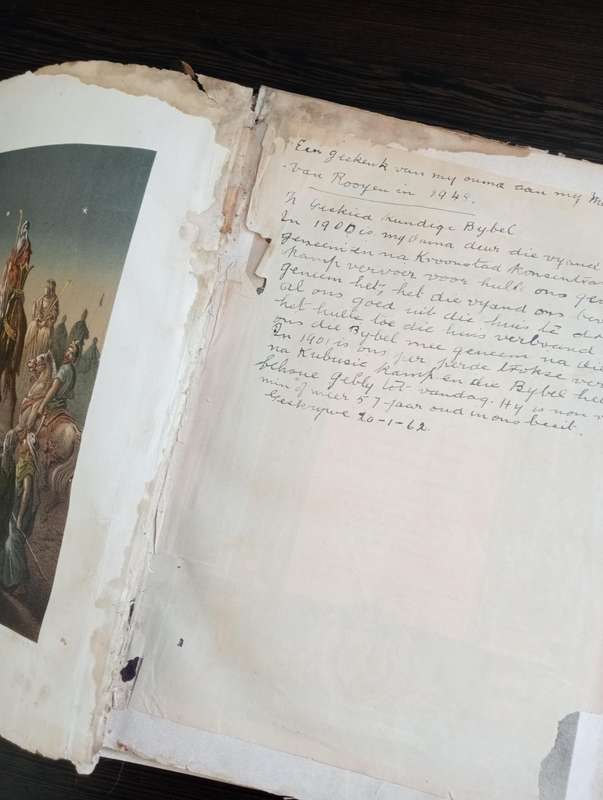 Een geskenk van my ouma aan my
van Rooyen in 1948.
'n Geskied kundige Bybel
In 1900 is my ouma deur die vyand
geneem en na Kroonstad
kamp vervoer voor hulle ons
geneem het, het die vyand ons
al ons goed uit die huis te
het hulle toe die huis verbrand
ons die Bybel mee geneem na die
In 1901 is ons per
na Kubusie kamp en die Bybel
behoue gebly tot vandag. Hy is nou
min of meer 57 jaar oud in ons besit.
Geskrywe 20-1-62.